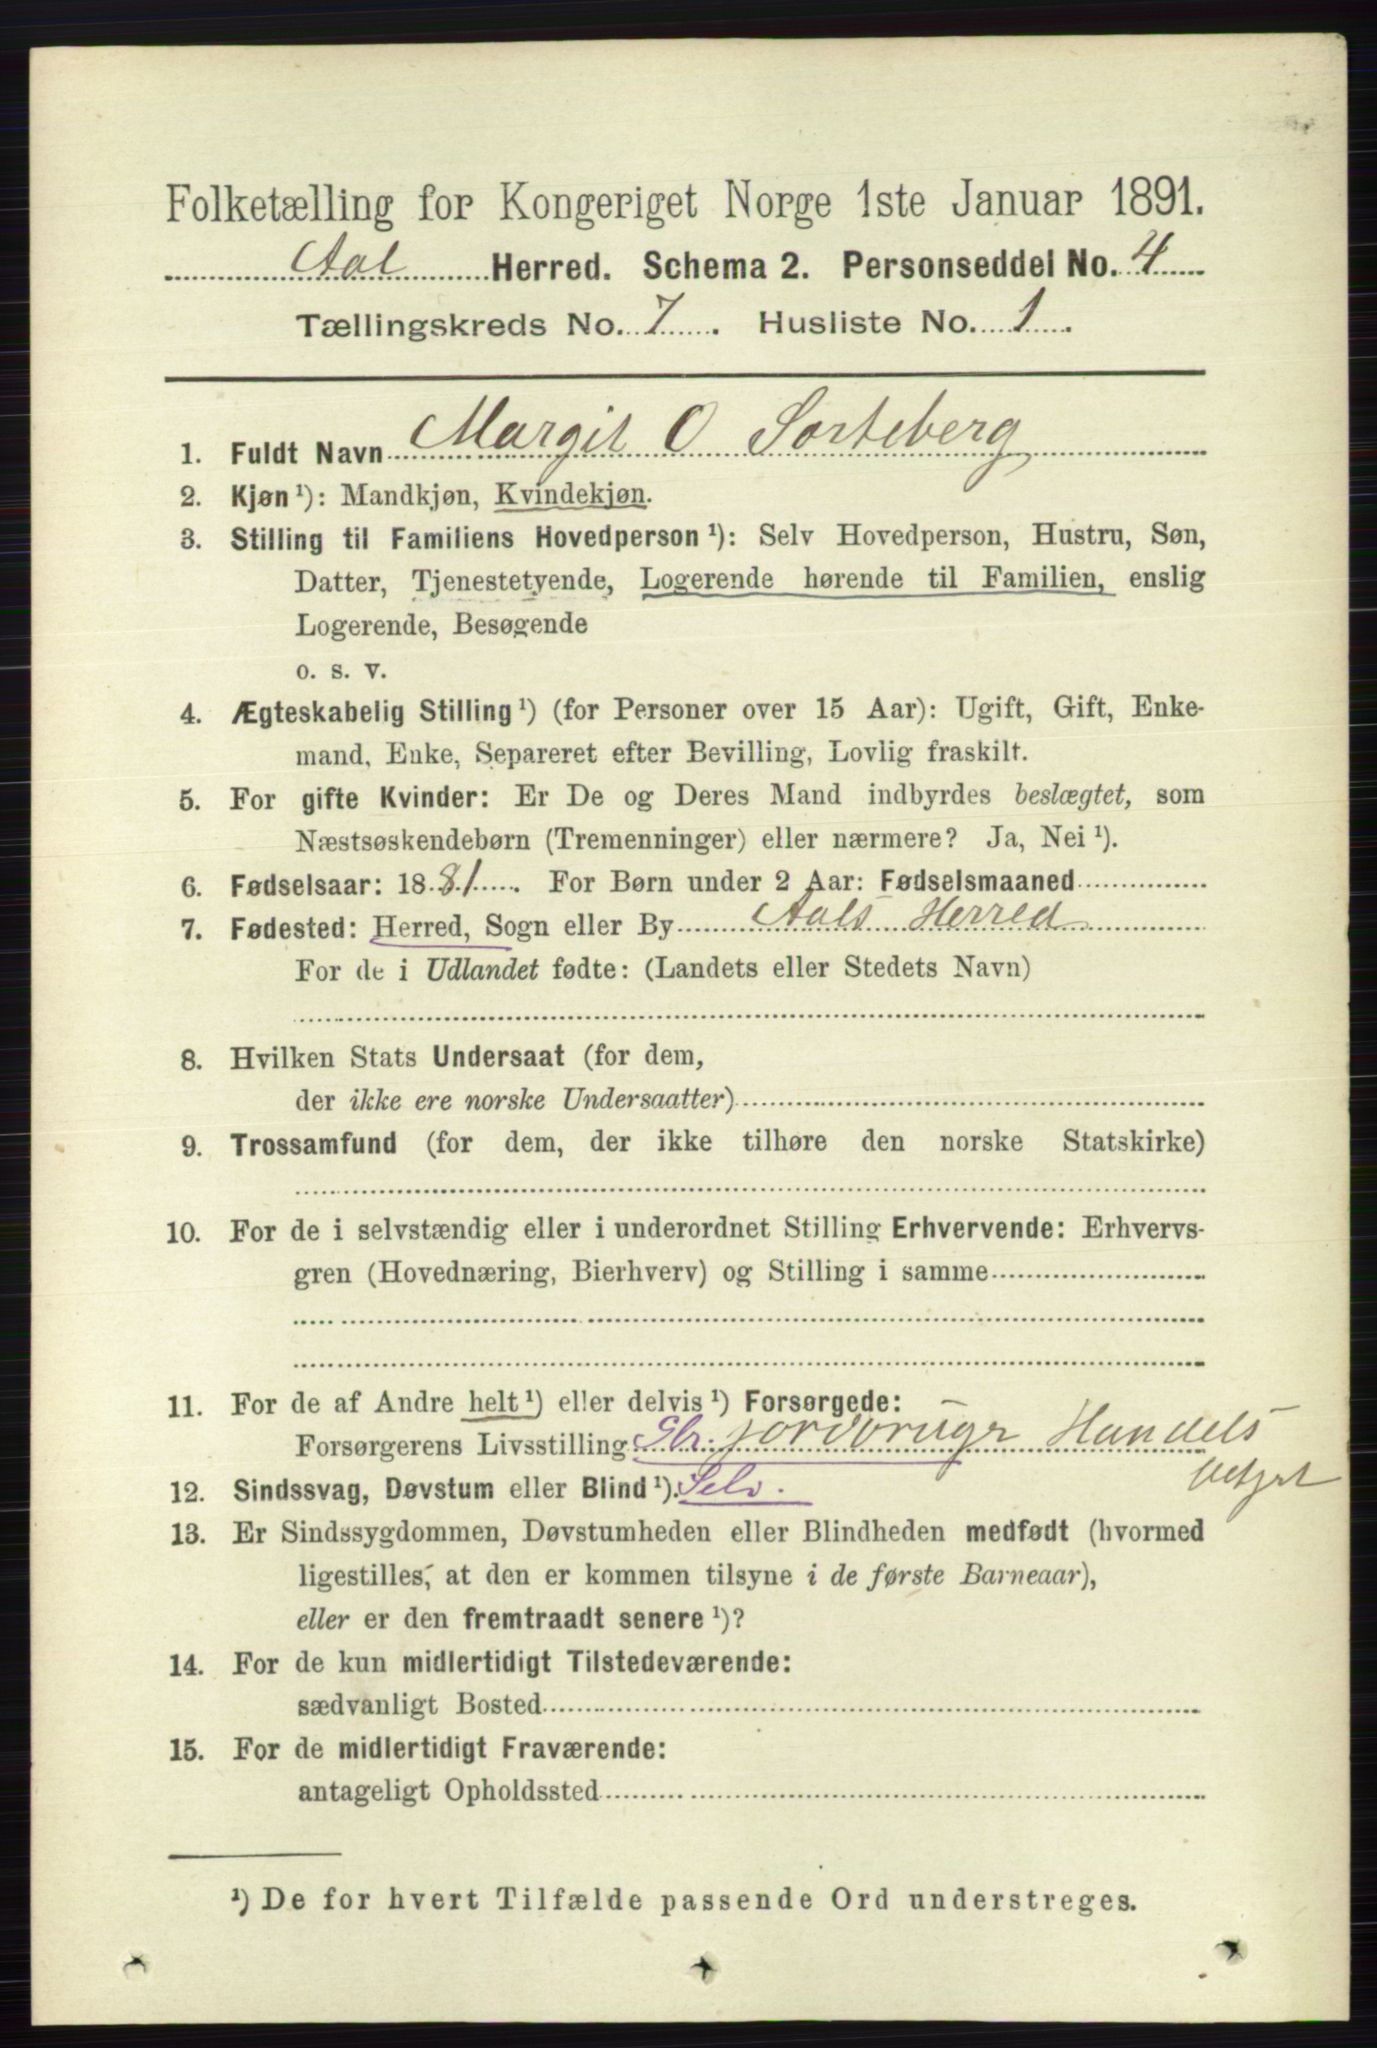 Folketælling for Kongeriget Norge 1ste Januar 1891.
Aal Herred. Schema 2. Personseddel No. 4
Tællingskreds No. 7. Husliste No. 1.
1. Fuldt Navn Margit O Sorteberg
2. Kjøn ¹): Mandkjøn, Kvindekjøn.
3. Stilling til Familiens Hovedperson ¹): Selv Hovedperson, Hustru, Søn,
Datter, Tjenestetyende, Logerende hørende til Familien, enslig
Logerende, Besøgende
o. s. v.
4. Ægteskabelig Stilling ¹) (for Personer over 15 Aar): Ugift, Gift, Enke-
mand, Enke, Separeret efter Bevilling, Lovlig fraskilt.
5. For gifte Kvinder: Er De og Deres Mand indbyrdes beslægtet, som
Næstsøskendebørn (Tremenninger) eller nærmere? Ja, Nei ¹).
6. Fødselsaar: 1881. For Børn under 2 Aar: Fødselsmaaned
7. Fødested: Herred, Sogn eller By Aals Herred
For de i Udlandet fødte: (Landets eller Stedets Navn)
8. Hvilken Stats Undersaat (for dem,
der ikke ere norske Undersaatter)
9. Trossamfund (for dem, der ikke tilhøre den norske Statskirke)
10. For de i selvstændig eller i underordnet Stilling Erhvervende: Erhvervs-
gren (Hovednæring, Bierhverv) og Stilling i samme
11. For de af Andre helt ¹) eller delvis ¹) Forsørgede:
Forsørgerens Livsstilling jordbruger Handels
12. Sindssvag, Døvstum eller Blind ¹). Selv.
13. Er Sindssygdommen, Døvstumheden eller Blindheden medfødt (hvormed
ligestilles, at den er kommen tilsyne i de første Barneaar),
eller er den fremtraadt senere ¹)?
14. For de kun midlertidigt Tilstedeværende:
sædvanligt Bosted
15. For de midlertidigt Fraværende:
antageligt Opholdssted
¹) De for hvert Tilfælde passende Ord understreges.